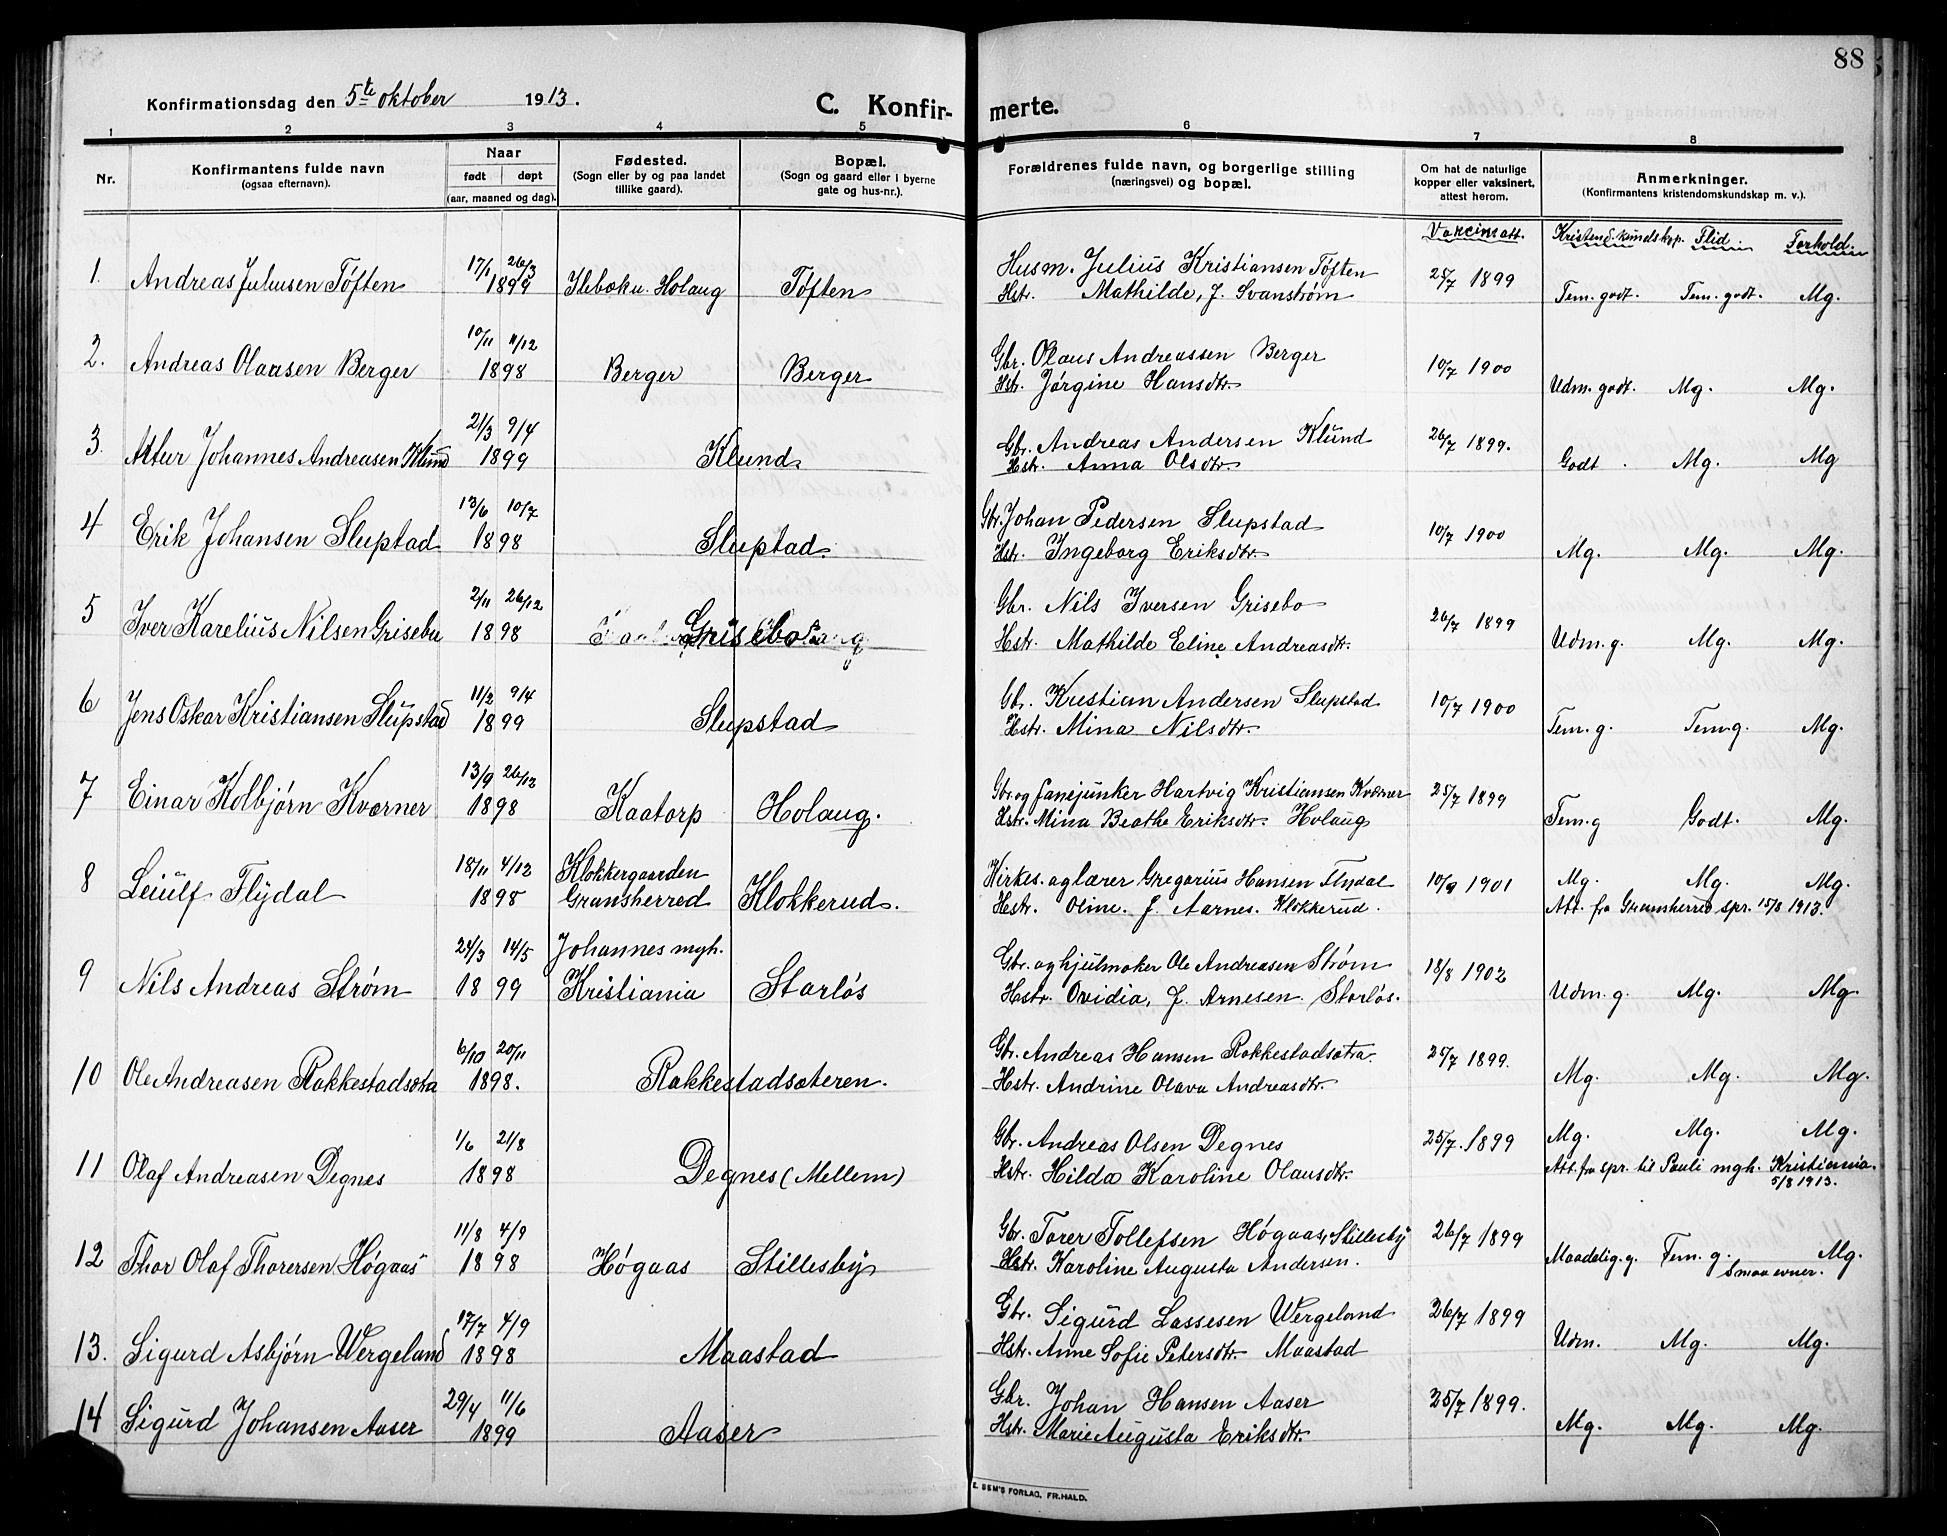 88
Konfirmationsdag den 5te oktober 1913.
C. Konfir- merte.
1 2 3 4 5 6 7 8
Nr.
Konfirmantens fulde navn
(ogsaa efternavn).
Naar
født døpt
(aar, maaned og dag).
Fødested.
(Sogn eller by og paa landet
tillike gaard).
Bopæl.
(Sogn og gaard eller i byerne
gate og hus-nr.).
Forældrenes fulde navn, og borgerlige stilling
(næringsvei) og bopæl.
Om hat de naturlige
kopper eller vaksinert,
attest herom.
Anmerkninger.
(Konfirmantens kristendomskundskap m. v.).
Vakcinatt. Kristend.kundskap. Flid. Forhold.
1. Andreas Juliusen Tøften 17/1 26/3 1899 Holaug Tøften
Husm. Julius Kristiansen Tøften 25/7 1899
Hstr. Mathilde, f. Svanstrøm Tem. godt. Tem. godt. Mg.
2. Andreas Olausen Berger 10/11 11/12 1898 Berger Berger
Gbr. Olaus Andreassen Berger 10/7 1900
Hstr. Jørgine Hansdtr. Udm. godt. Mg. Mg.
3. Johannes Andreasen Klund 21/3 9/4 1899 Klund
Gbr. Andreas Andersen Klund 26/7 1899.
Hstr. Anna Olsdtr. Godt. Mg. Mg
4 Erik Johansen Slupstad 13/6 10/7 1898 Slupstad.
Gbr. Johan Pedersen Slupstad 10/7 1900
Hstr. Ingeborg Eriksdtr. Mg. Mg. Mg.
5 Iver Karelius Nilsen Grisebu 2/11 26/12 1898 Grisebo
Gbr. Nils Iversen Grisebo 26/7 1899
Hstr. Mathilde Eline Andreasdtr. Udm. g. Mg. Mg.
6 Jens Oskar Kristiansen Slupstad 11/2 9/4 1899 Slupstad
Gbr. Kristian Andersen Slupstad 10/7 1900
Hstr. Mina Nilsdtr. Tem. g. Tem. g. Mg.
7 Einar Kolbjørn Kværner 13/9 26/12 1898 Kaatorp Holaug.
Gbr. og fanejunker Hartvig Kristiansen Kværner 25/7 1899
Hstr. Mina Beathe Eriksdtr. Holaug Tem. g Godt. Mg.
8 Leiulf Flydal 18/11 4/12 1898 Klokkergaarden Gransherred Klokkerud.
Kirkes. og lærer Gregorius Hansen Flydal 10/9 1901 Mg. Mg. Mg.
Hstr. Oline. f. Aarnes. Klokkerud. Att. fra Gransherred spr. 15/8 1913.
9 Nils Andreas Strøm 24/3 14/5 1899 Johannes mgh. Kristiania Starløs
Gbr. og hjulmaker Ole Andreasen Strøm 18/8 1902
Hstr. Ovidia, f. Arnesen. Starløs. Udm. g. Mg. Mg.
10 Ole Andreasen Rakkestadsætra 6/10 20/11 1898. Rakkestadsæteren.
Gbr. Andreas Hansen Rakkestadsætra 25/7 1899.
Hstr. Andrine Olava Andreasdtr. Mg. Mg. Mg.
11 Olaf Andreasen Degnes 1/6 21/8 1898 Degnes (Mellem)
Gbr. Andreas Olsen Degnes 25/7. 1899 Mg. Mg. Mg.
Hstr. Hilda Karoline Olausdtr. Att. fra spr. til Pauli mgh. Kristiania.
5/8 1913.
12 Thor Olaf Thorersen Høgaas 11/8 4/9 1898 Høgaas Stillesby
Gbr. Torer Tollefsen Høgaas, Stillesby 26/7 1899
Hstr. Karoline Augusta Andersen. Maadelig. g. Tem. g. Mg.
Smaa evner.
13. Sigurd Asbjørn Wergeland 17/7 4/9 1898 Maastad
Gbr. Sigurd Lassesen Wergeland 26/7 1899
Hstr. Anne Sofie Petersdtr. Maastad Udm. Mg. Mg.
14 Sigurd Johansen Aaser 29/4 11/6 1899 Aaser
Gbr. Johan Hansen Aaser 25/7 1899.
Hstr. Marie Augusta Eriksdtr. Mg. Mg. Mg.
E. SEM'S FORLAG, FR.HALD.